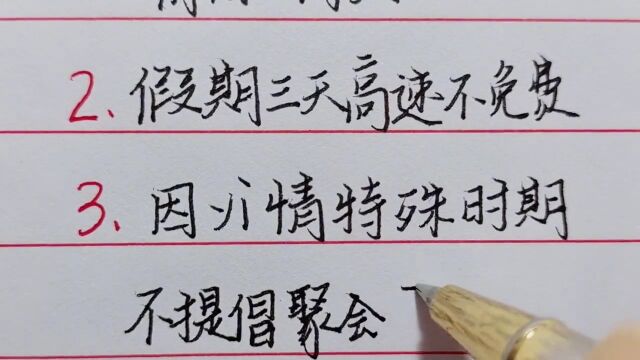 2. 假期三天高速不免费
3. 因yi情特殊时期
不提倡聚会